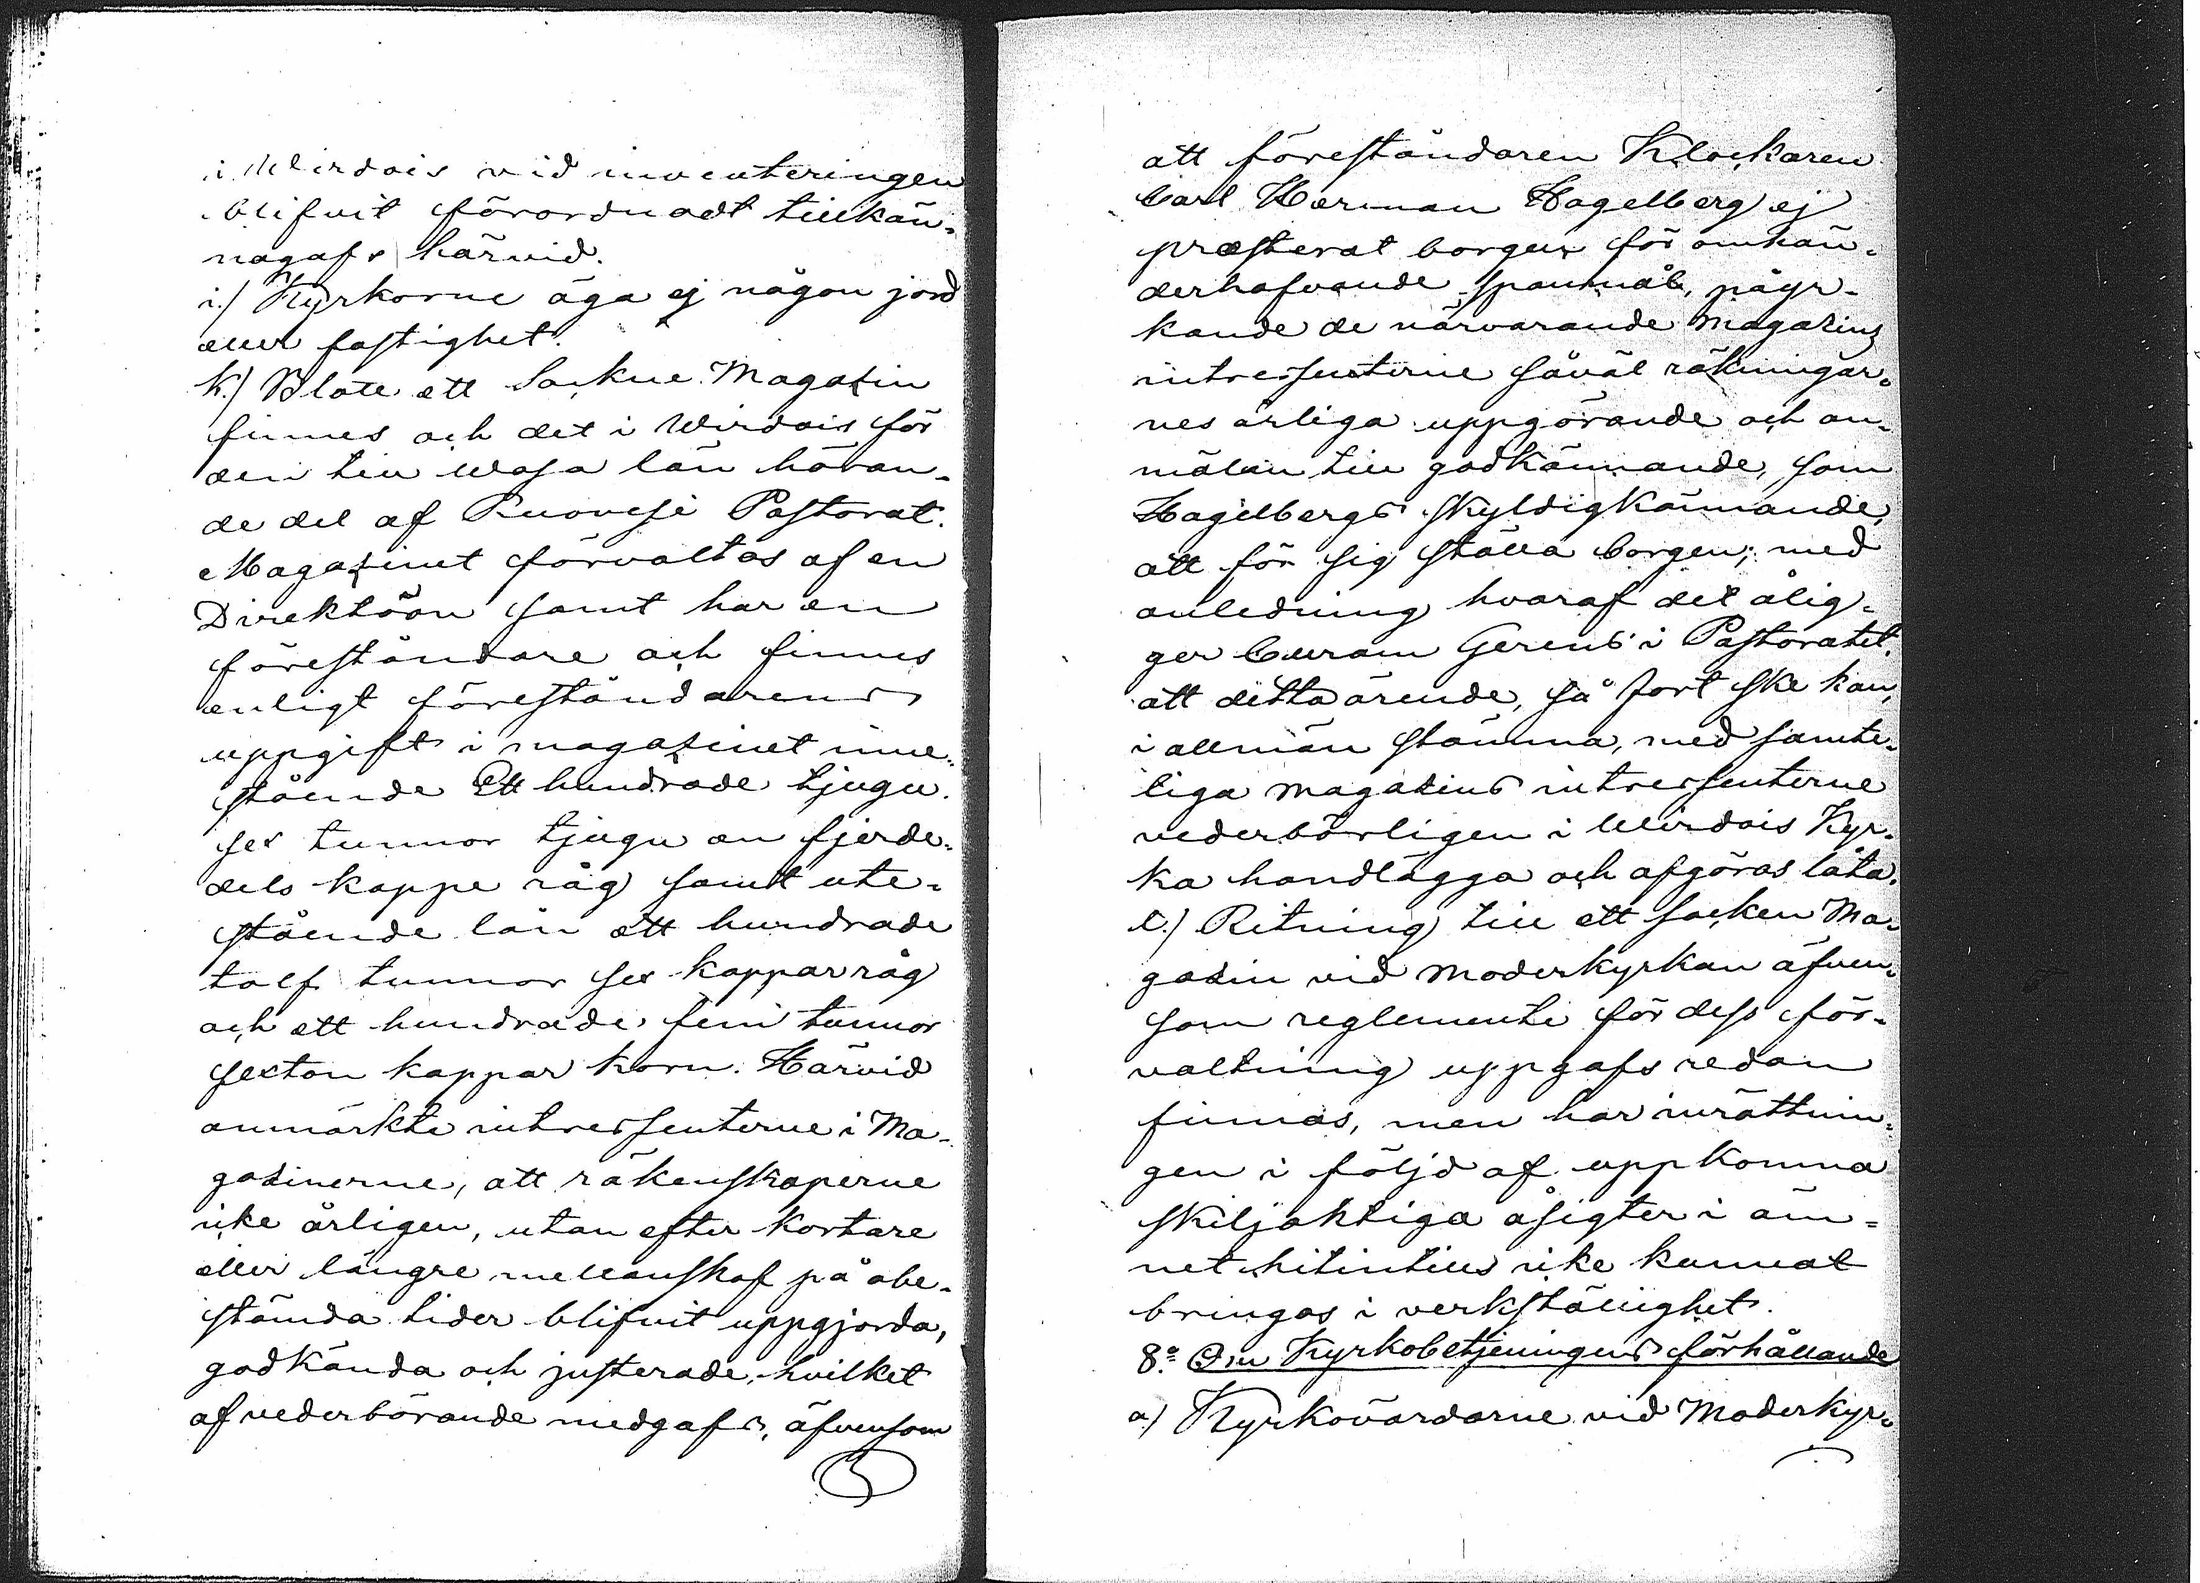 i Wirdois vid inventeringen
blifvit förordnadt tillkän-
nagafs härvid.
i.) Kyrkorne äga ej någon jord
eller fastighet.
k.) Blott ett Sockne Magazin
finnes och det i Wirdois för
den till Wasa län höran-
de del af Ruovesi Pastorat.
Magazinet förvaltas af en
Direktion samt har en
föreståndare och finnes
enligt föreståndarens
uppgift i magazinet inne-
stående Ett hundrade tjugu
sex tunnor tjugu en fjerde-
dels kappe råg samt ute-
stående lån ett hundrade
tolf tunnor sex kappar råg
och ett hundrade fem tunnor
sexton kappar korn. Härvid
anmärkte intressenterne i Ma-
gazinerne, att räkenskaperne
icke årligen, utan efter kortare
eller längre mellanskof på obe-
stämda tider blifvit uppgjorda,
godkända och justerade, hvilket
af vederbörande medgafs, äfvensom
att föreståndaren Klockaren
Carl Herman Hagelberg ej
præsterat borgen för omhän-
derhafvande spannmål, påyr-
kande de närvarande Magazins
intressenterne såväl räkningar-
nes årliga uppgörande och an-
mälan till godkännande, som
Hagelbergs skyldigkännande,
att för sig ställa borgen; med
anledning hvaraf det ålig-
ger Curam Gerens i Pastoratet,
att detta ärende, så fort ske kan,
i allmän stämma, med samte-
liga magazins intressenterne
vederbörligen i Wirdois Kyr-
ka handlägga och afgöras låta.
l.) Ritning till ett socken Ma-
gazin vid Moderkyrkan äfven-
som reglemente för dess för-
valtning uppgafs redan
finnas, men har inrättnin-
gen i följd af uppkomna
skiljaktiga åsigter i äm-
net hitintills icke kunnat
bringas i verkställighet.
8:o Om Kyrkobetjeningens förhållande
a) Kyrkovärdarne vid Moderkyr-